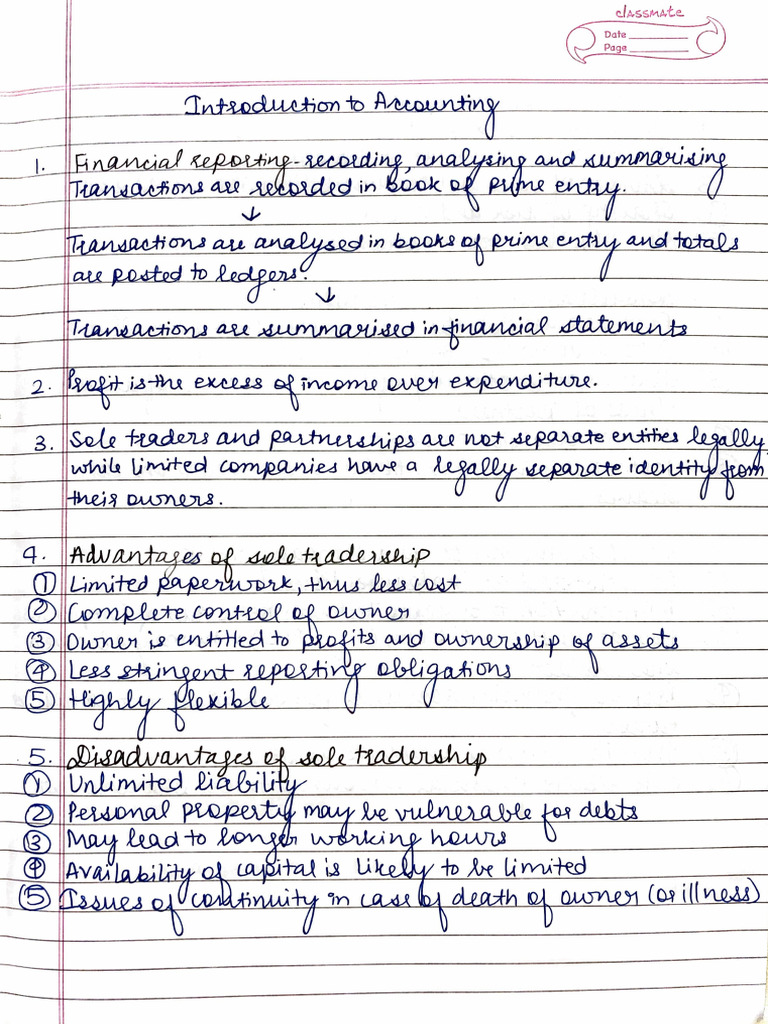 classmate
Date
Page
Introduction to Accounting
1. Financial reporting - recording, analysing and summarising
Transactions are recorded in book of prime entry.
↓
Transactions are analysed in books of prime entry and totals
are posted to ledgers.
↓
Transactions are summarised in financial statements
2. Profit is the excess of income over expenditure.
3. Sole traders and partnerships are not separate entities legally,
while limited companies have a legally separate identity from
their owners.
4. Advantages of sole tradership
① Limited paperwork, thus less cost
② Complete control of owner
③ Owner is entitled to profits and ownership of assets
④ Less stringent reporting obligations
⑤ Highly flexible
5. Disadvantages of sole tradership
① Unlimited liability
② Personal property may be vulnerable for debts
③ May lead to longer working hours
④ Availability of capital is likely to be limited
⑤ Issues of continuity in case of death of owner (or illness)